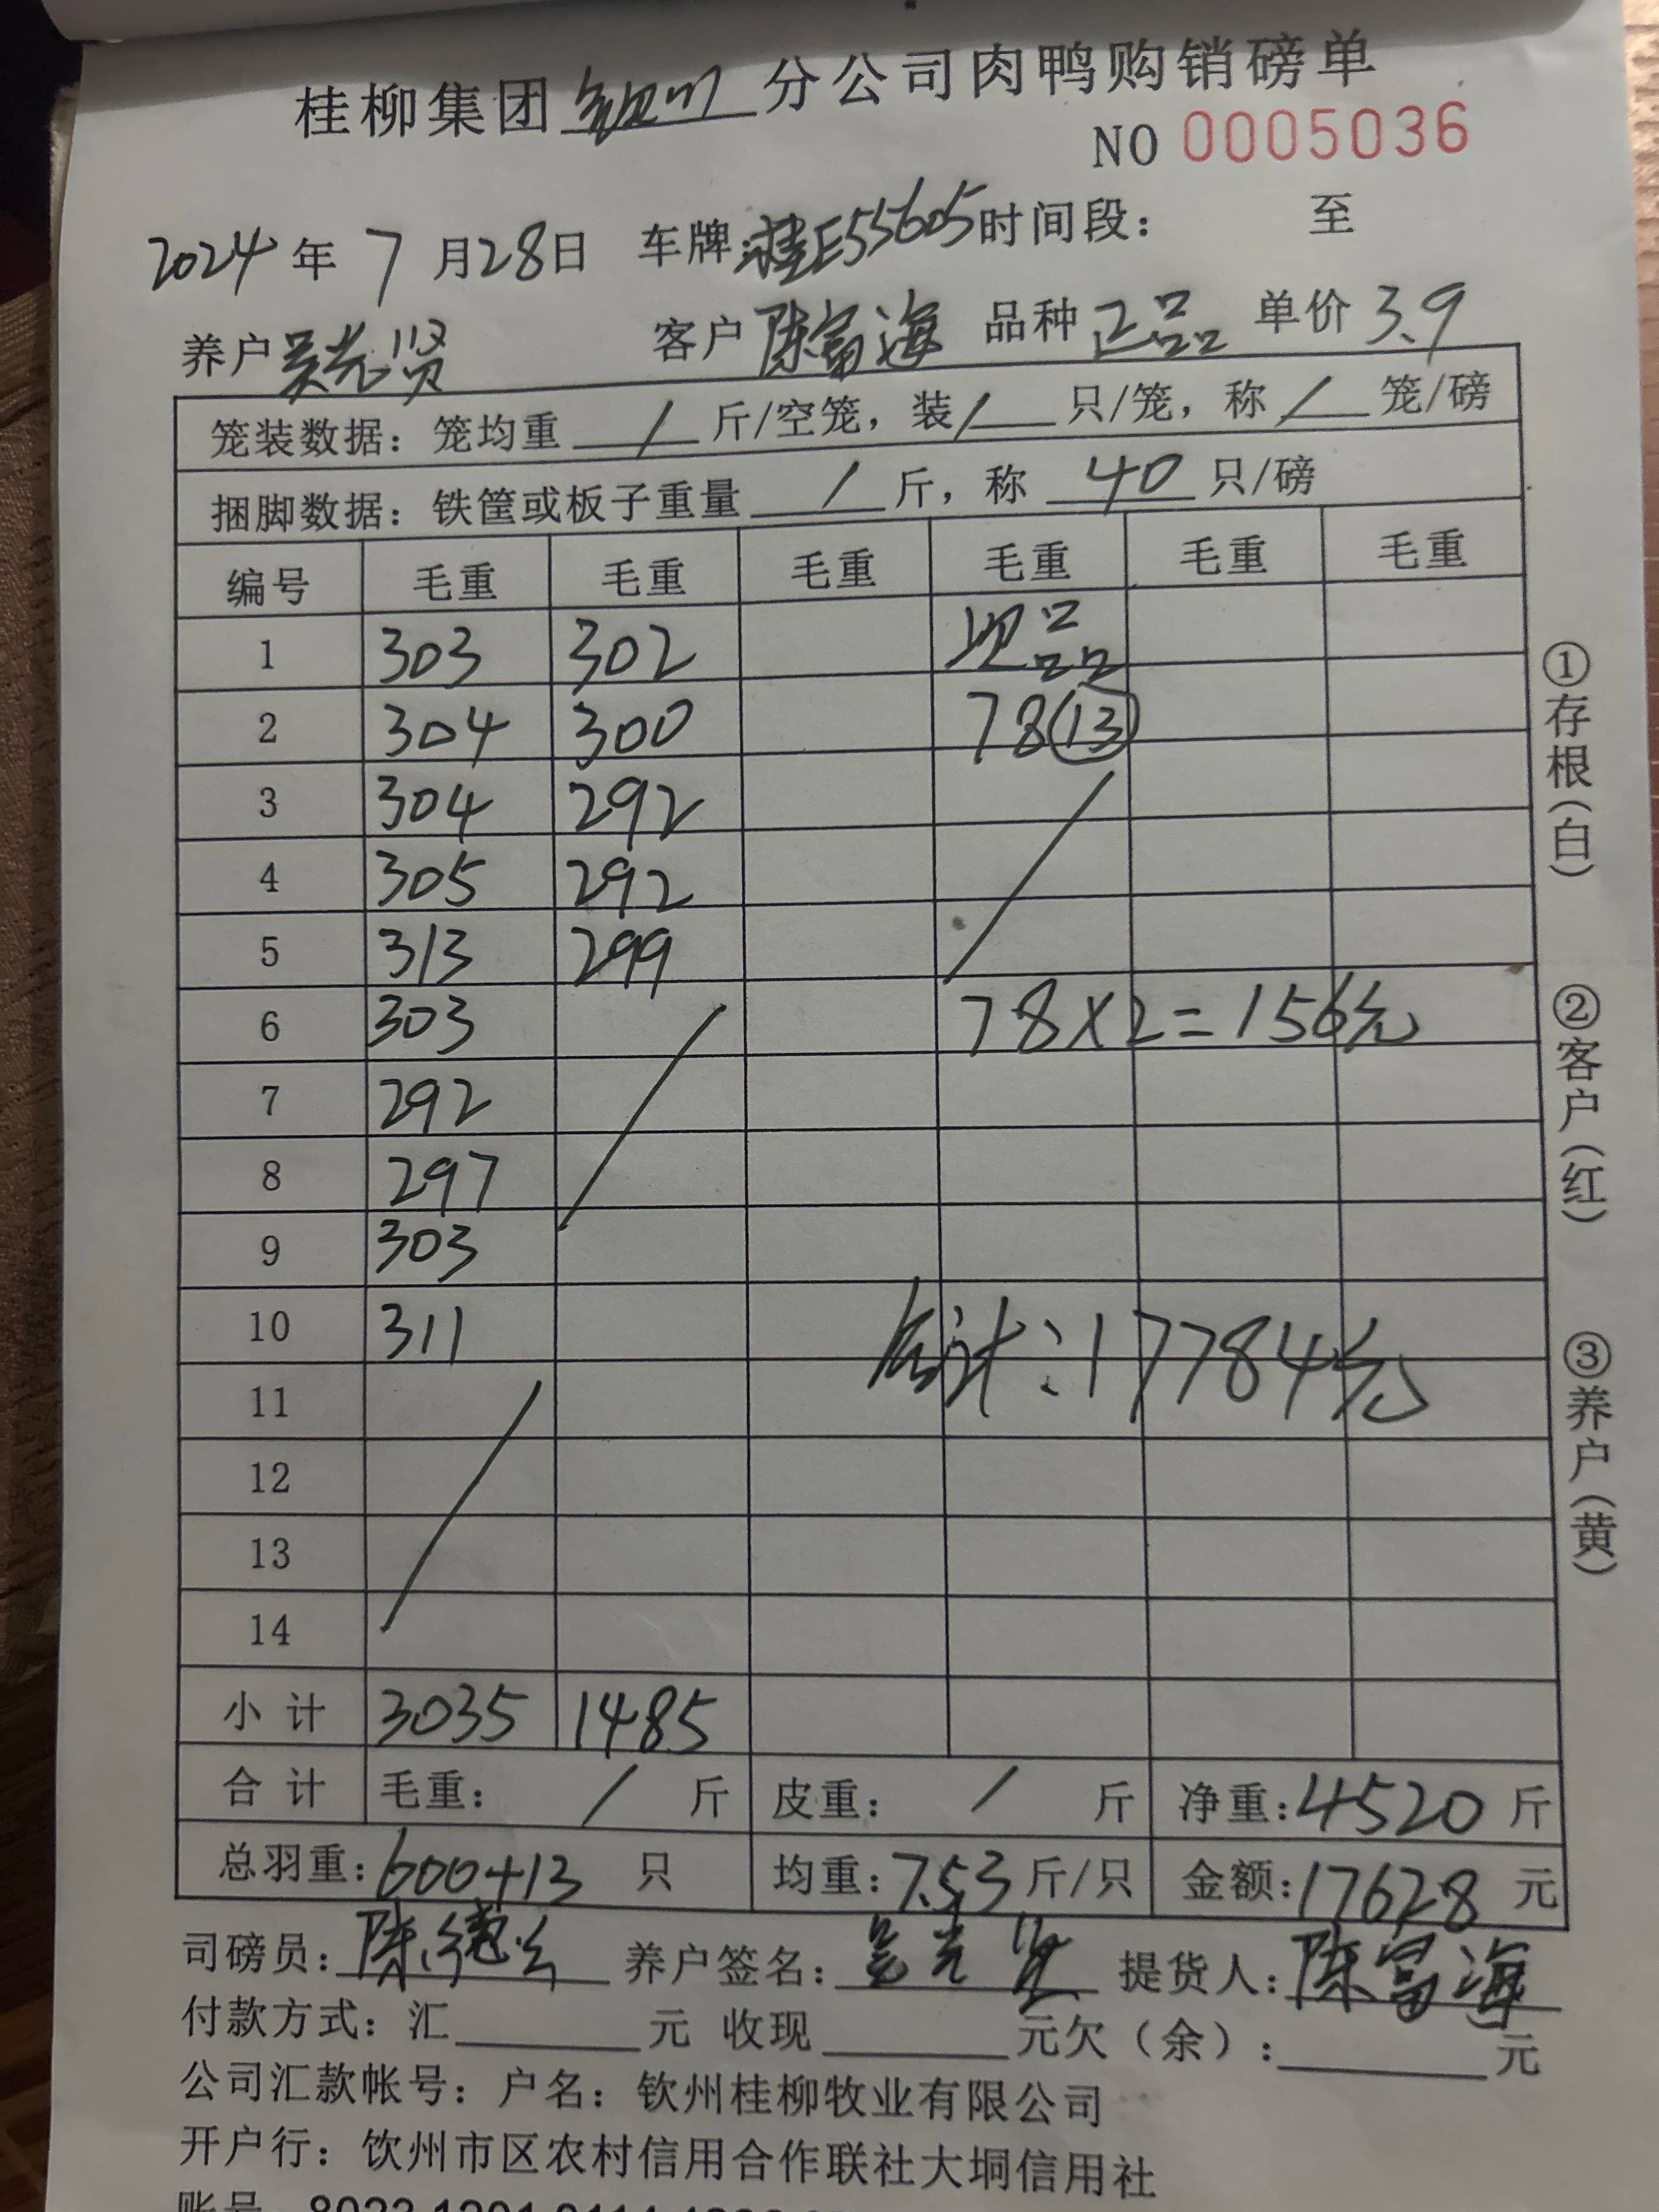 桂柳集团钦州分公司肉鸭购销磅单
NO 0005036
2024年7月28日 车牌:桂E55605时间段: 至
养户吴光贤 客户陈富海 品种正品 单价3.9
笼装数据: 笼均重/斤/空笼, 装/只/笼, 称/笼/磅
捆脚数据: 铁筐或板子重量/斤, 称40只/磅
编号 毛重 毛重 毛重 毛重 毛重 毛重
1 303 302 品
2 304 300 78(13)
3 304 292
4 305 292
5 313 299
6 303 78×2=156元
7 292
8 297
9 303
10 311 合计:17784元
11
12
13
14
小计 3035 1485
合计 毛重: / 斤 皮重: / 斤 净重:4520斤
总羽重:600+13只 均重:7.53斤/只 金额:17628元
司磅员:陈德 养户签名:吴光贤 提货人:陈富海
付款方式: 汇 元 收现 元欠(余): 元
公司汇款帐号: 户名: 钦州桂柳牧业有限公司
开户行: 钦州市区农村信用合作联社大垌信用社
账号
①存根(白)
②客户(红)
③养户(黄)